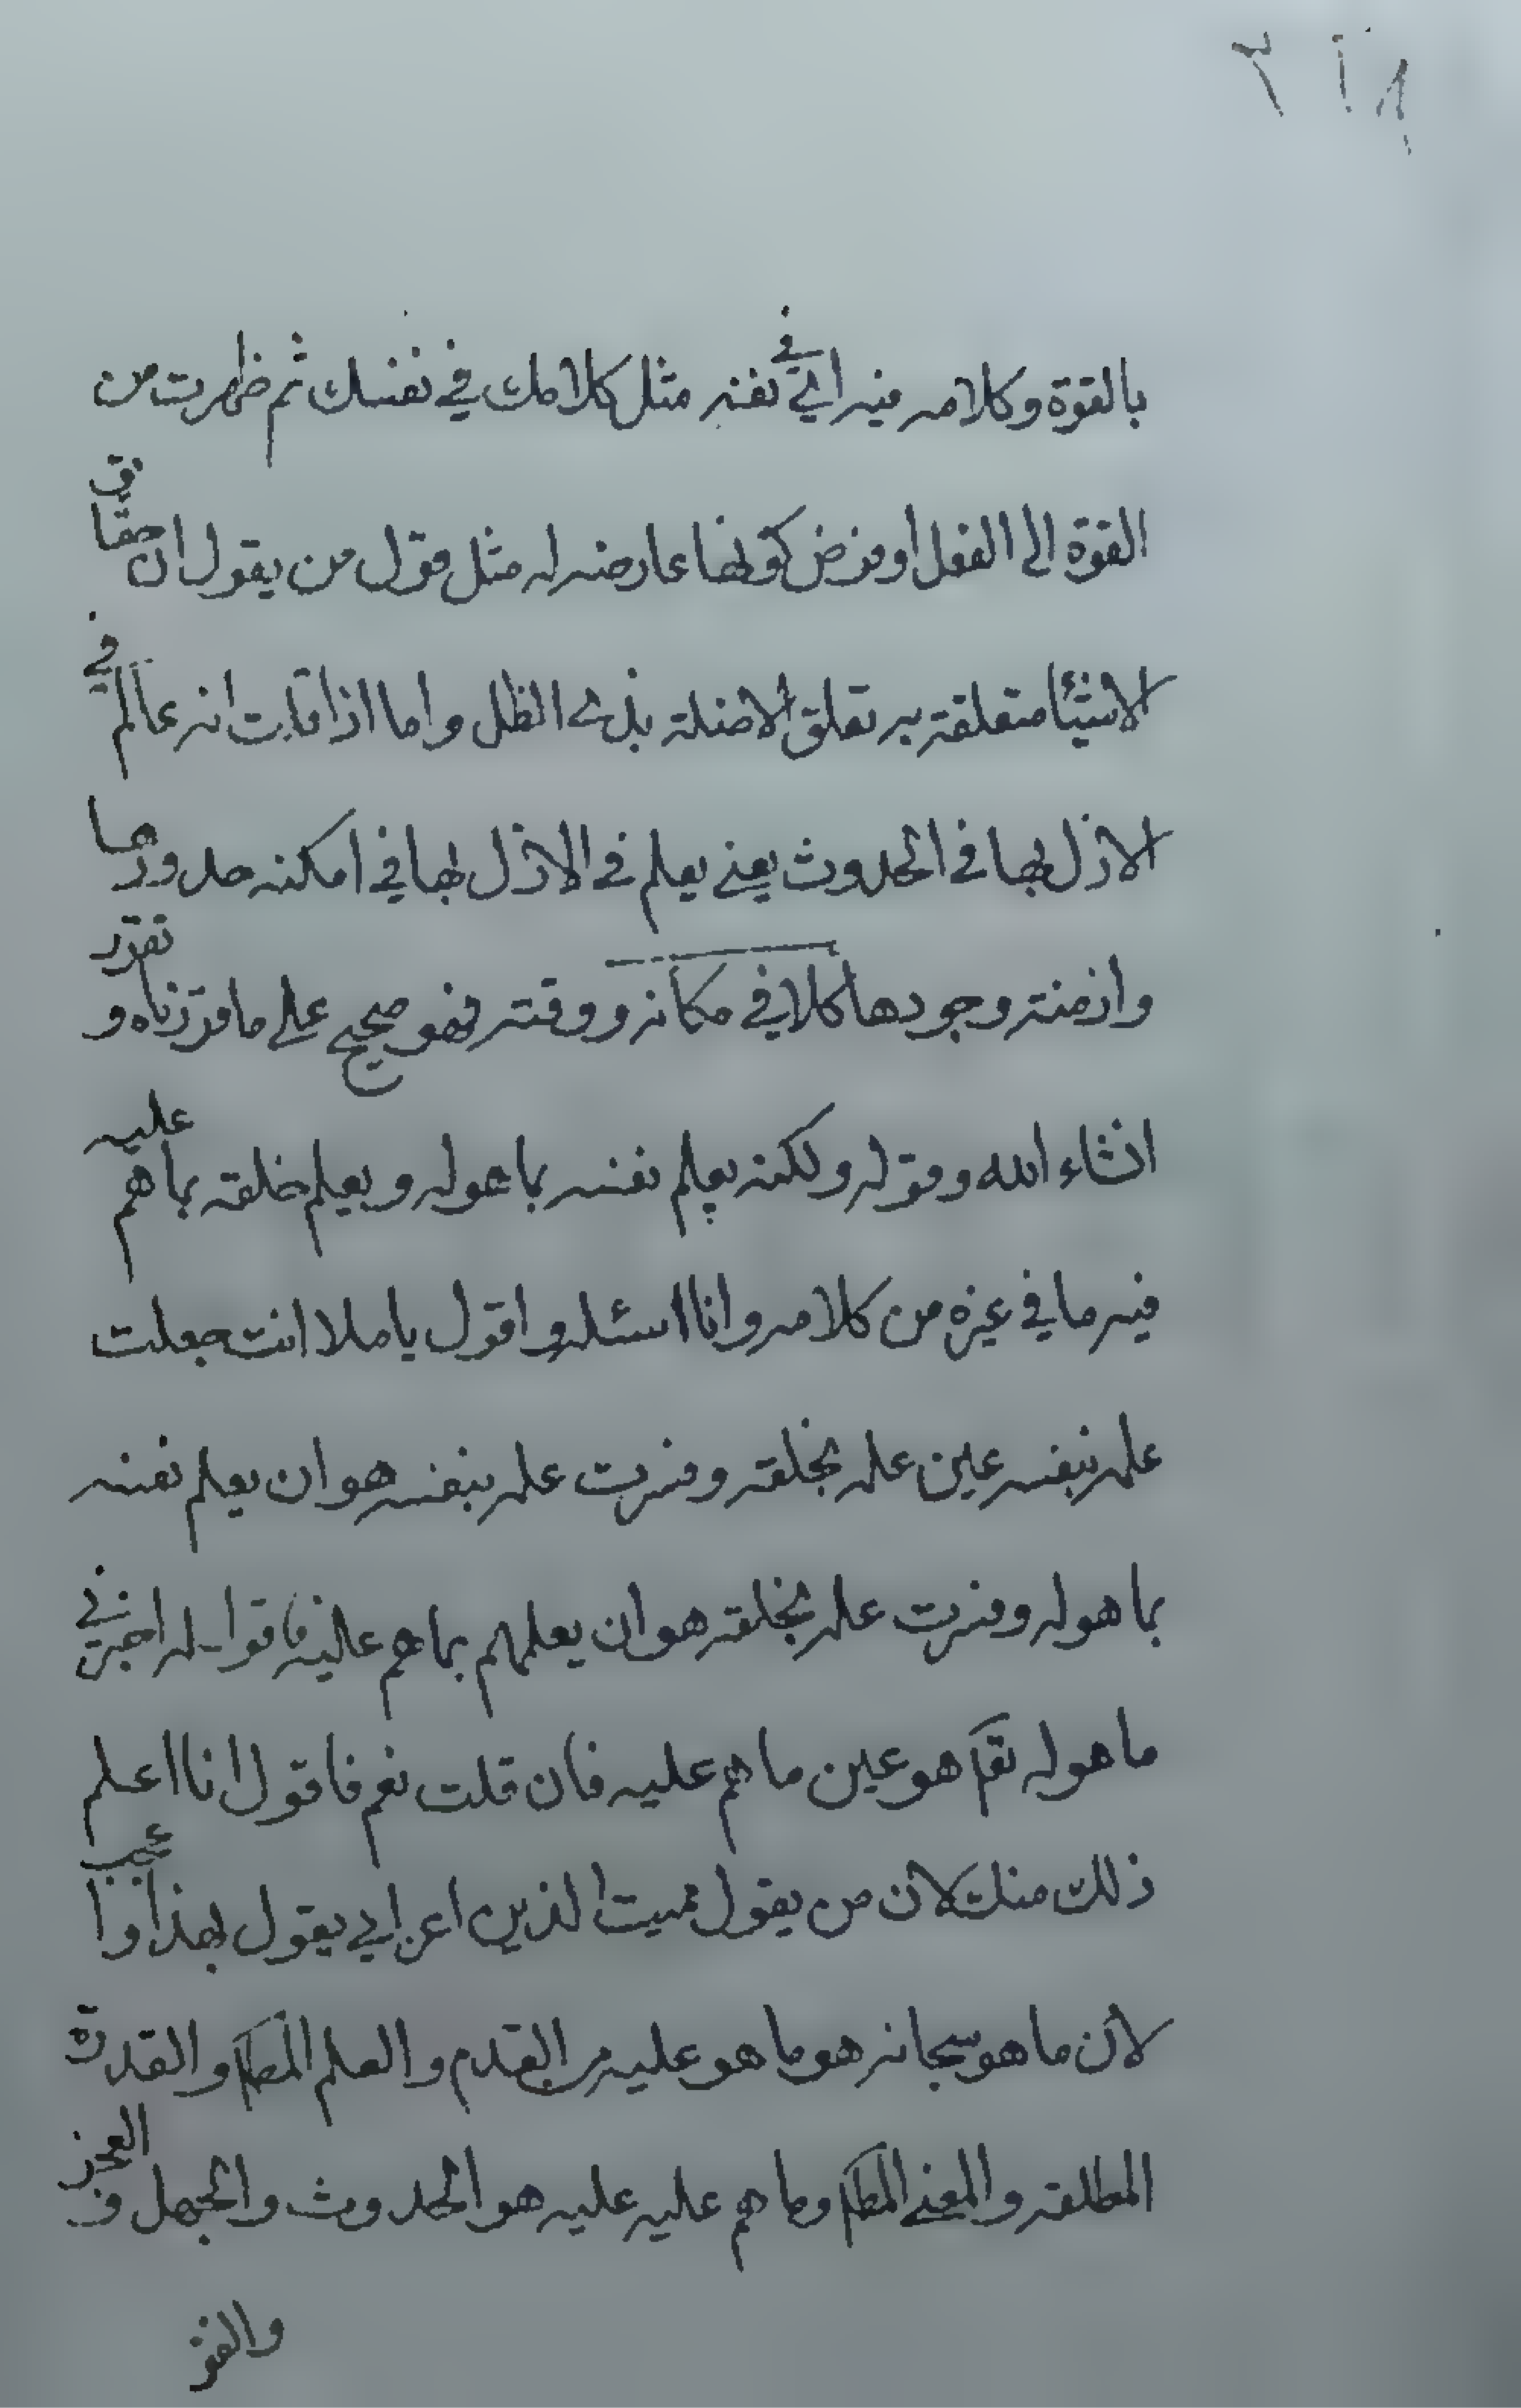 بالقوة وكلامه فيه اي في نفسه مثل كلامك في نفسك ثم ظهرت من
القوة الى الفعل او فرض كونها عارضه له مثل قول من يقول ان حقايق
الاشيئا متعلقة به تعلق الاضلة بذي الظل واما اذا قلت انه عالم في
الازل بها في الحدوث يعني يعلم في الازل بها في امكنه حدودها
وازمنة وجودها كلا في مكانه ووقته فهو صحيح على ما قررناه و نقرر
انشاء الله وقوله ولكنه يعلم نفسه بما هو له ويعلم خلقه بما هم عليه
فيه ما في غيره من كلامه وانا اسئله واقول يا ملا انت جعلت
علمه بنفسه عين علمه بخلقه وفسرت علمه بنفسه هو ان يعلم نفسه
بما هو له وفسرت علمه بخلقه هو ان يعلمهم بما هم عليه فاقول له اخبرني
ما هو له تعم هو عين ما هم عليه فان قلت نعم فاقول انا اعلم
ذلك منك لان من يقول مميت الدين اعرابي يقول بهذا واعجب
لان ما هو سبحانه هو ما هو عليه من القدم والعلم المط والقدرة
المطلقه والغنى المط وما هم عليه عليه هو الحدوث والجهل و العجز
والفقر